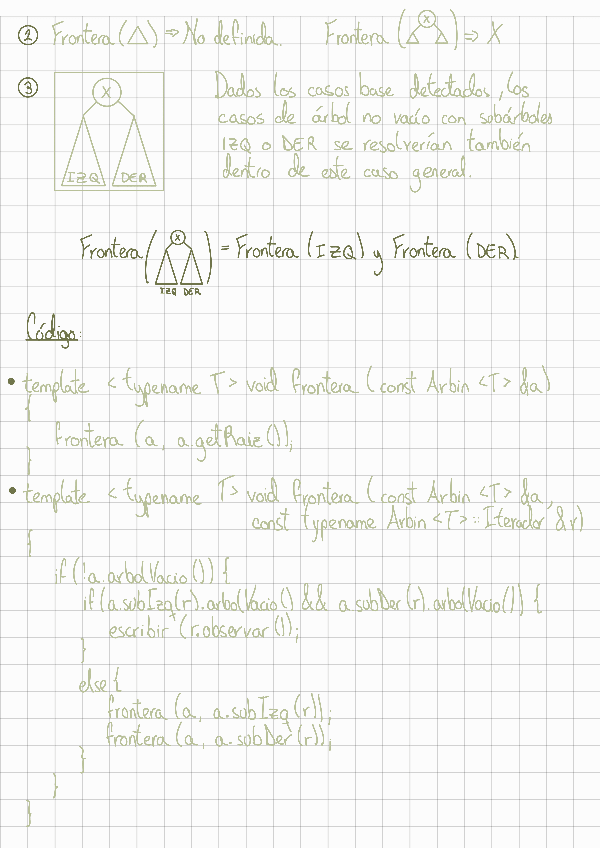 ② Frontera (△) ⇒ No definida. Frontera (X) ⇒ X
③ X IZQ DER
Dados los casos base detectados, los
casos de árbol no vacío con subárboles
IZQ o DER se resolverían también
dentro de este caso general.
Frontera (X IZQ DER) = Frontera (IZQ) y Frontera (DER)
Código:
• template <typename T> void frontera (const Arbin <T> &a)
{
frontera (a, a.getRaiz());
}
• template <typename T> void frontera (const Arbin <T> &a,
const typename Arbin <T>::Iterador &r)
{
if (!a.arbolVacio()) {
if (a.subIzq(r).arbolVacio() && a.subDer(r).arbolVacio()) {
escribir* (r.observar());
}
else {
frontera (a, a.subIzq(r));
frontera (a, a.subDer(r));
}
}
}